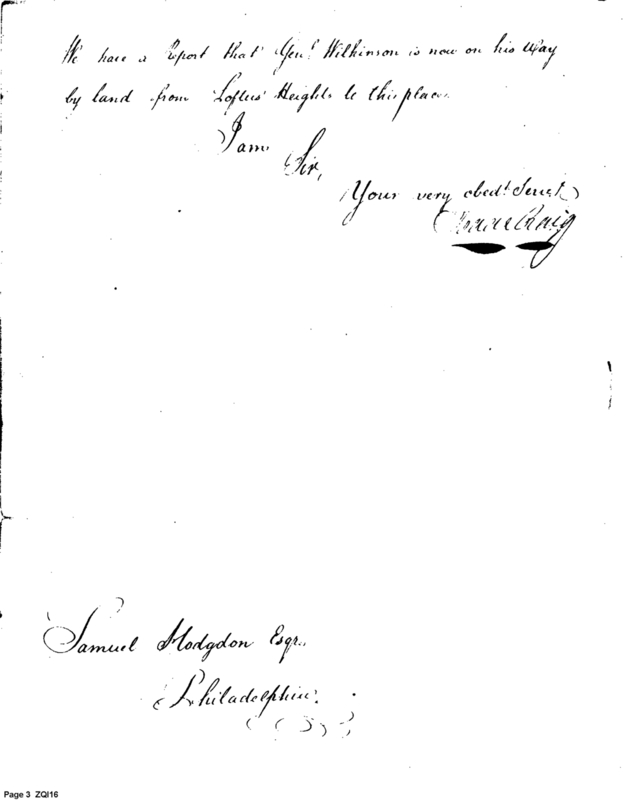 We have a Report that Genl. Wilkinson is now on his way
by land from Loftus' Heights to this place.
I am
Sir,
Your very obedt. Servt.
Isaac Craig
Samuel Hodgdon Esqr.
Philadelphia.
Page 3 ZQI16